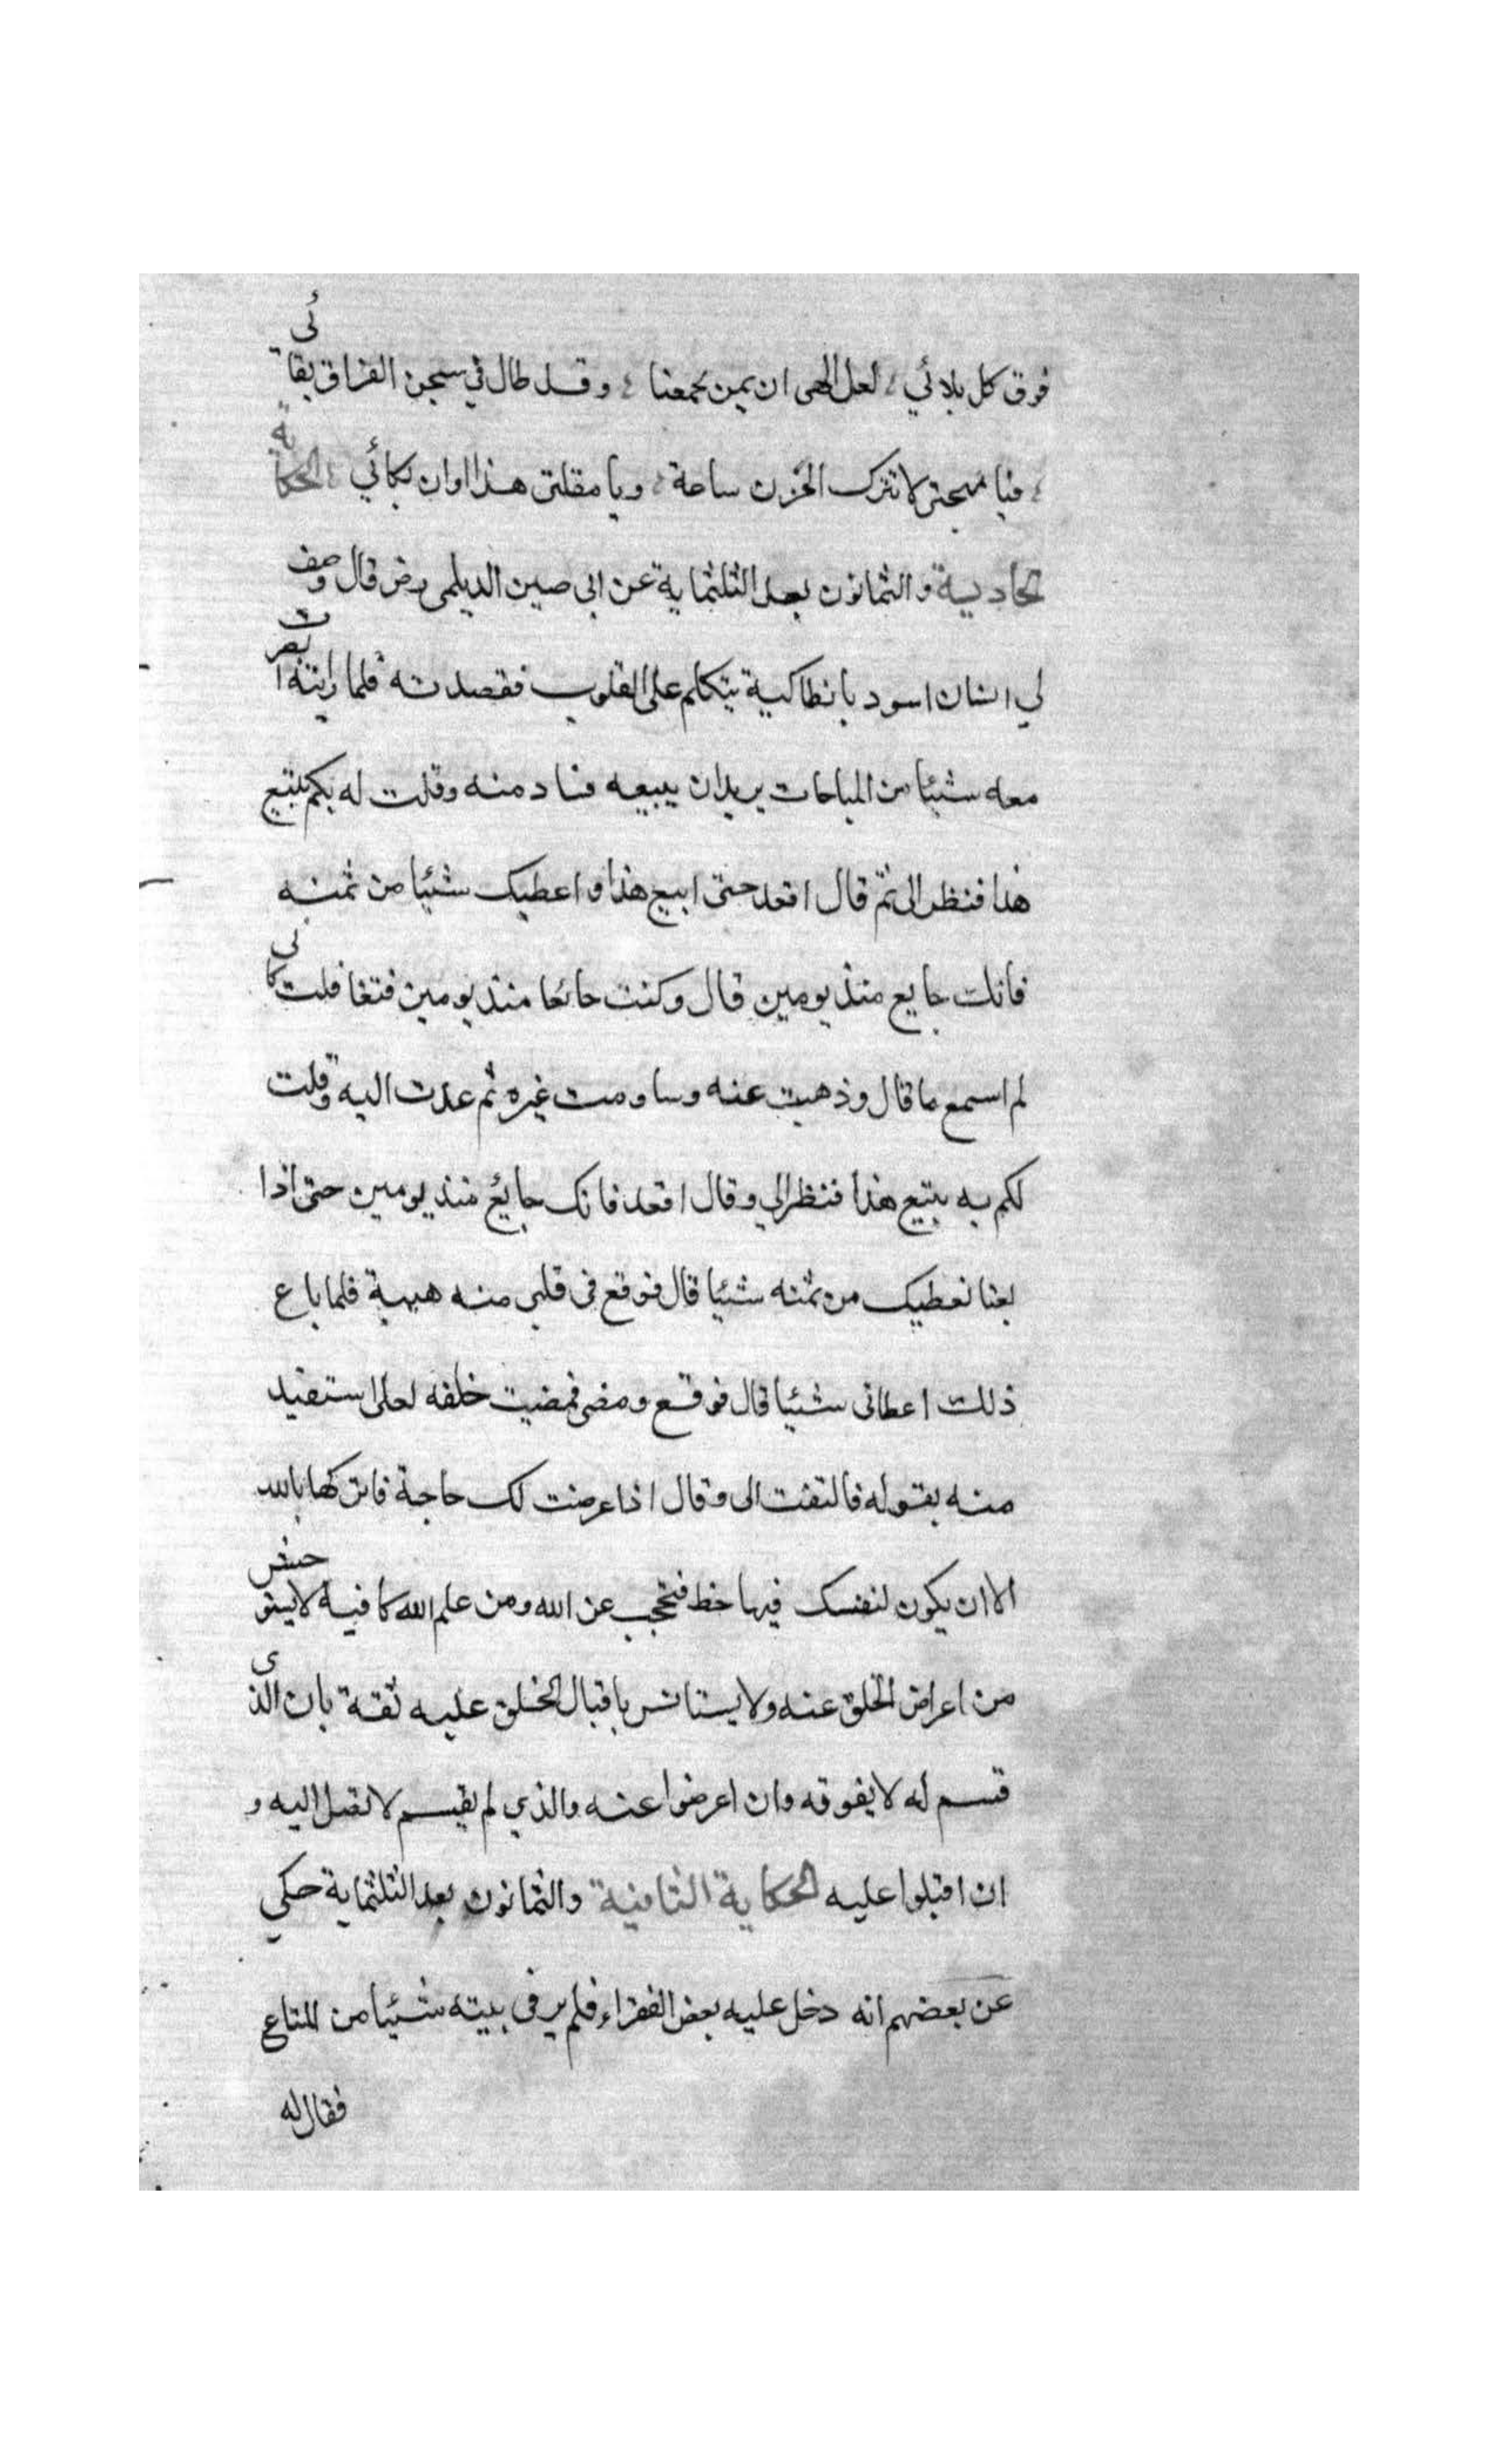 فوق كل بلائي ؛ لعل الهى ان يمن بجمعنا ؛ وقد طال في سجن الفراق بقائي
؛ فيا مهجتى لا تترك الحزن ساعة ؛ ويا مقلتى هذا اوان بكائي ؛ الحكاية
الحادية والثمانون بعد الثلثماية عن ابى الديلمى رض قال وصف
لي انسان اسود بانطاكية يتكلم على القلوب فقصدته فلما رايته ابصرت
معه شيئا من المباحات يريد ان يبيعه منه وقلت له بكم تبيع
هذا فنظر الى ثم قال اقعد حتى ابيع هذا واعطيك شيئا من ثمنه
فانك جايع منذ يومين قال وكنت جائعا منذ يومين فتغافلت كانى
لم اسمع ما قال وذهبت عنه وساومت غيره ثم عدت اليه وقلت
له بكم تبيع هذا فنظر الي وقال اقعد فانك جايع منذ يومين حتى اذا
بعنا نعطيك من ثمنه شيئا قال فوقع فى قلبى منه هيبة فلما باع
ذلك اعطانى شيئا قال فوقع ومضى فمضيت خلفه لعلى استفيد
منه بقوله فالتفت الى وقال اذا عرضت لك حاجة فاتركها بالله
الا ان يكون لنفسك فيها حظ فتحجب عن الله ومن علم الله كافيه لا يستوحش
من اعراض الخلق عنه ولا يستانس باقبال الخلق عليه ثقة بان الذى
قسم له لا يفوته وان اعرضوا عنه والذي لم يقسم لا تصل اليه و
ان اقبلوا عليه الحكاية الثانية والثمانون بعد الثلثماية حكي
عن بعضهم انه دخل عليه بعض الفقراء فلم ير فى بيته شيئا من المتاع
فقال له